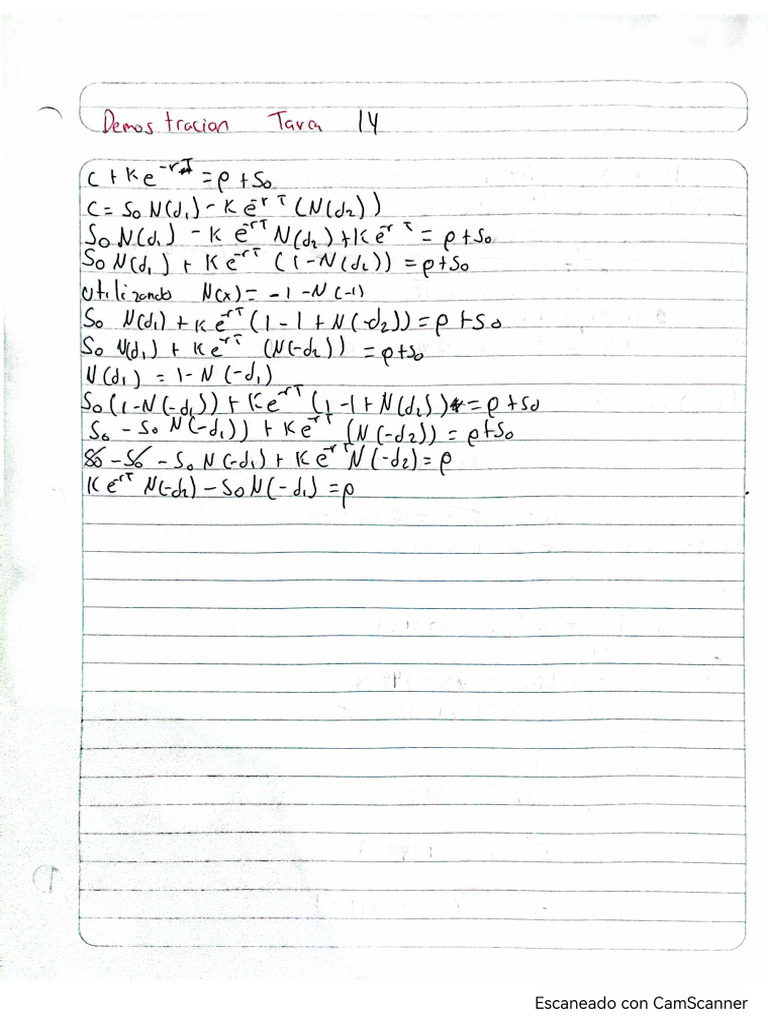 Demostracion Tarea 14
C + K e^-rT = p + So
C = So N(d1) - K e^-rT (N(d2))
So N(d1) - K e^-rT N(d2) + K e^-rT = p + So
So N(d1) + K e^-rT (1 - N(d2)) = p + So
Utilizando N(x) = -1 - N(-1)
So N(d1) + K e^-rT (1 - 1 + N(-d2)) = p + So
So N(d1) + K e^-rT (N(-d2)) = p + So
N(d1) = 1 - N(-d1)
So (1 - N(-d1)) + K e^-rT (1 - 1 + N(d2)) = p + So
So - So N(-d1)) + K e^-rT (N(-d2)) = p + So
So - So - So N(-d1) + K e^-rT N(-d2) = p
K e^-rT N(-d2) - So N(-d1) = p
Escaneado con CamScanner